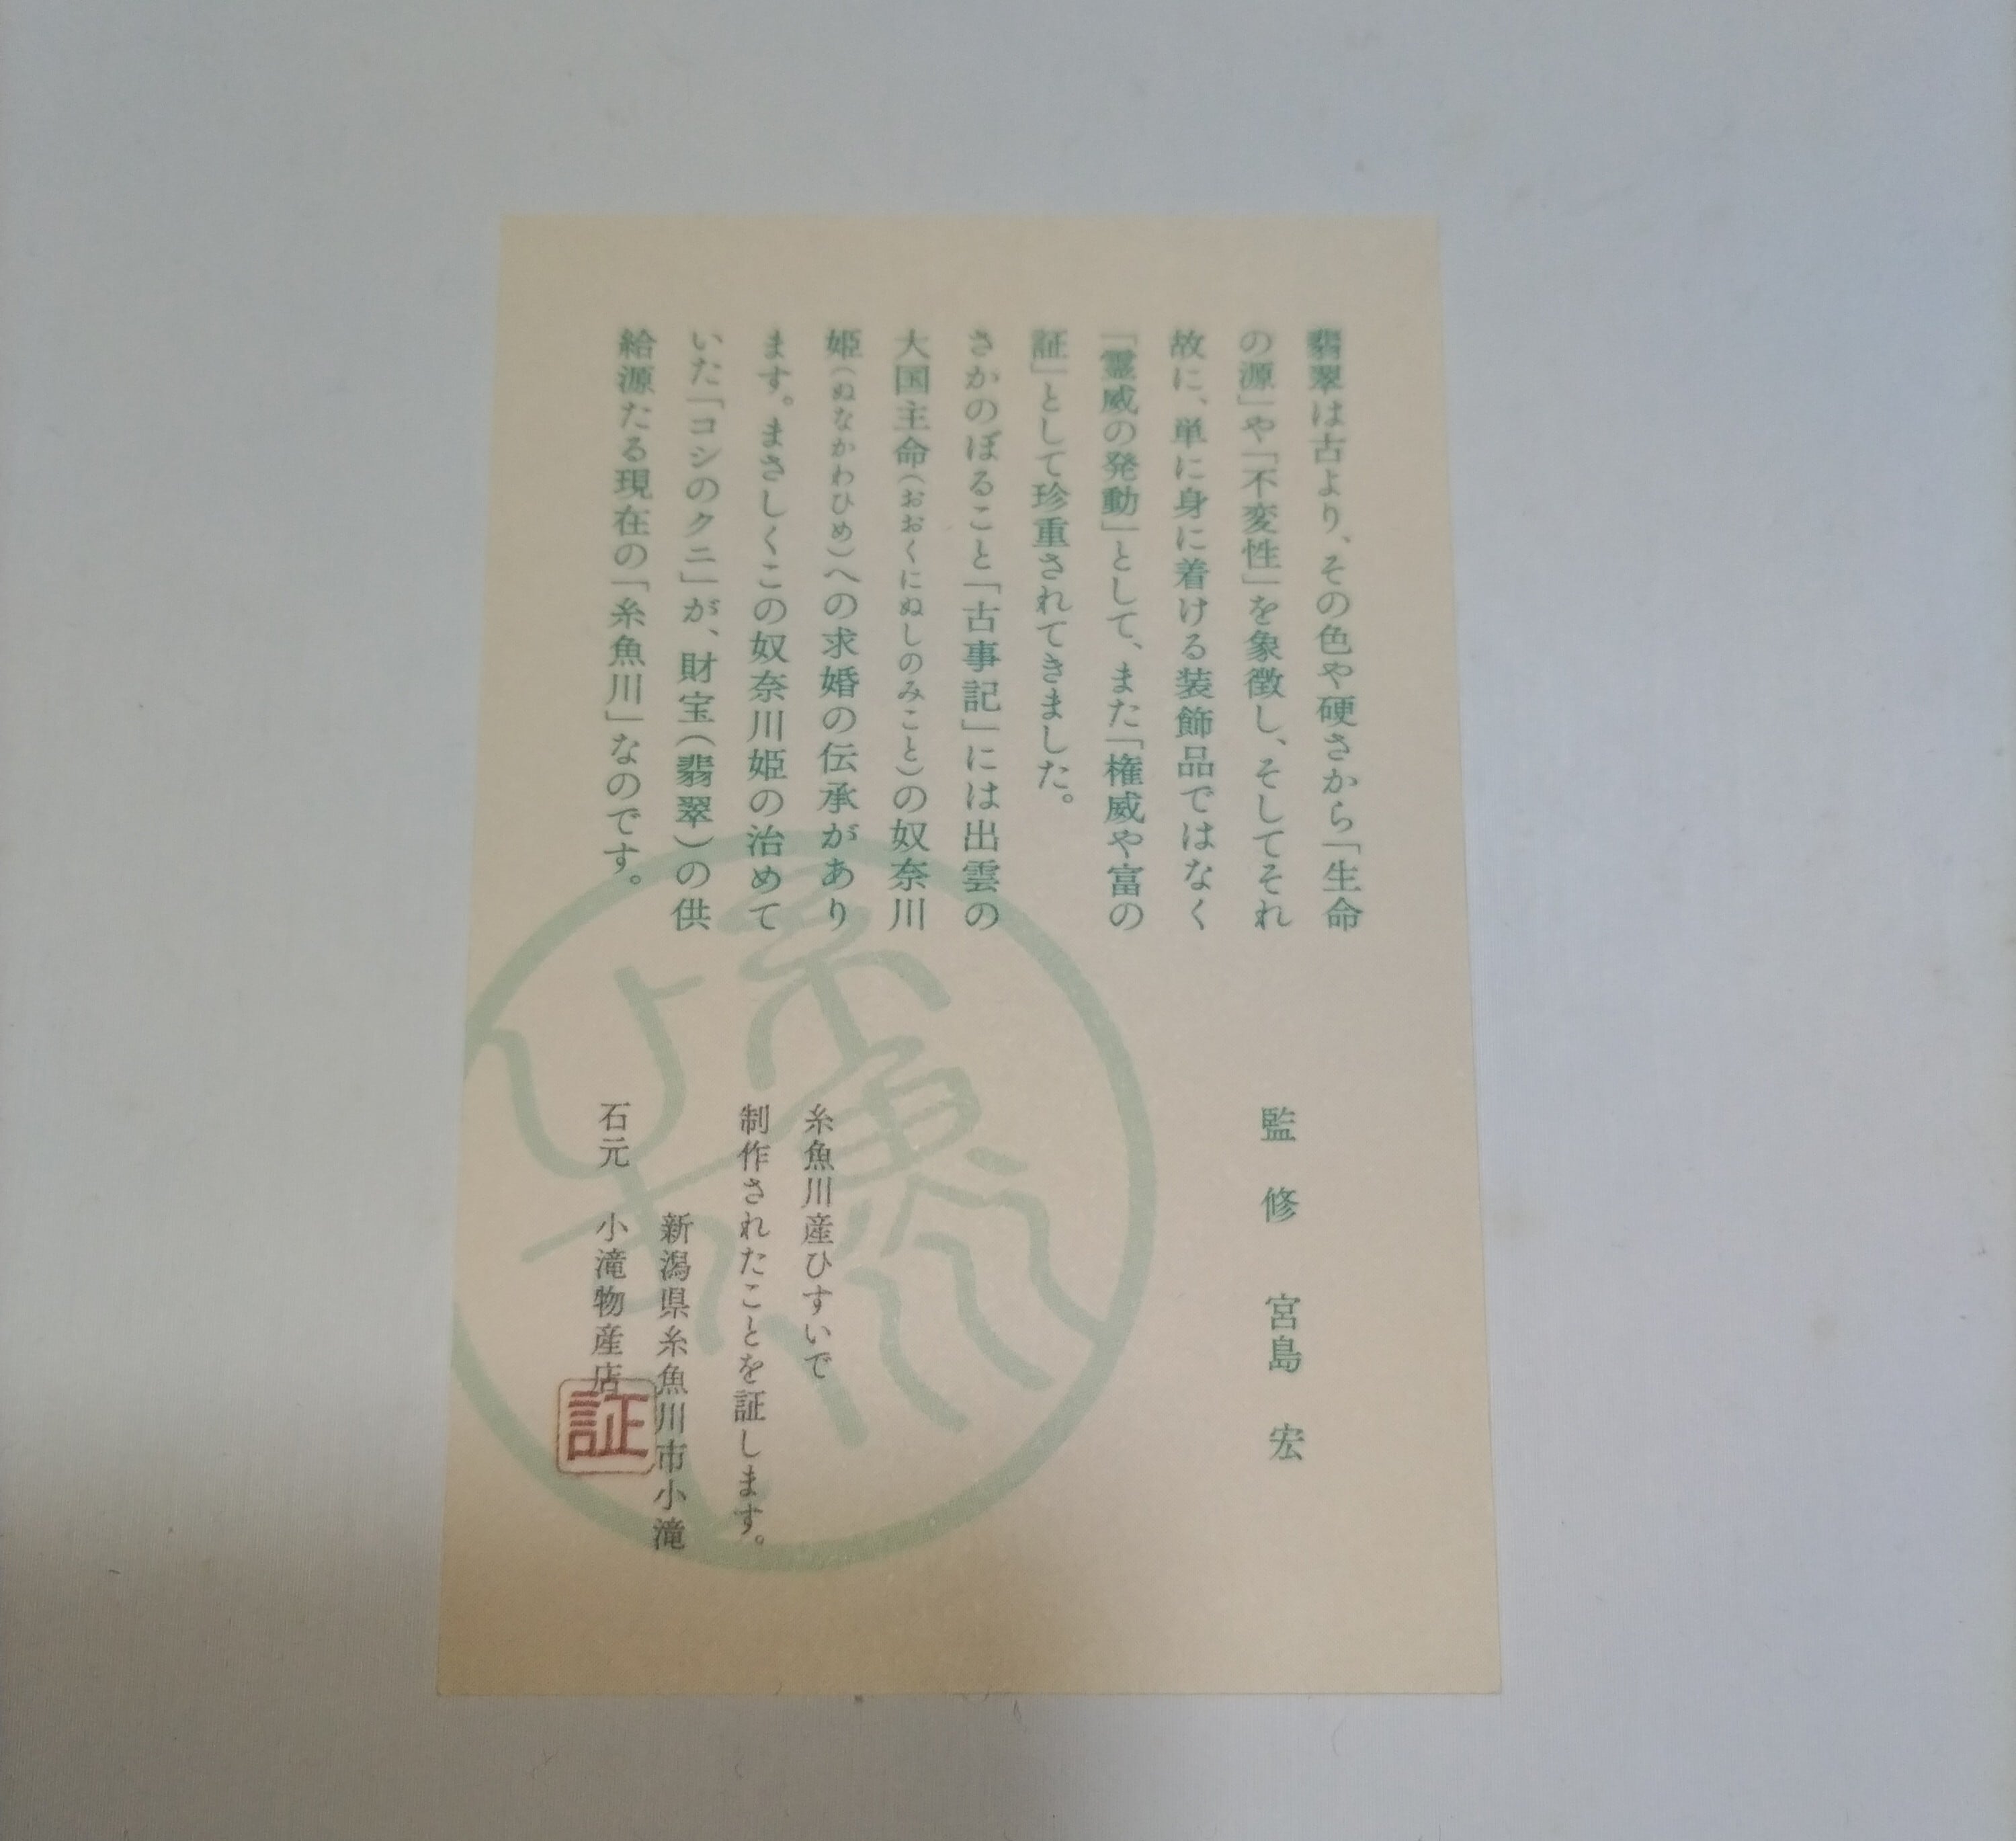 翡翠は古より、その色や硬さから「生命
の源」や「不変性」を象徴し、そしてそれ
故に、単に身に着ける装飾品ではなく
「霊威の発動」として、また「権威や富の
証」として珍重されてきました。
さかのぼること「古事記」には出雲の
大国主命(おおくにぬしのみこと)の奴奈川
姫(ぬなかわひめ)への求婚の伝承があり
ます。まさしくこの奴奈川姫の治めて
いた「コシのクニ」が、財宝(翡翠)の供
給源たる現在の「糸魚川」なのです。
監修 宮島 宏
糸魚川産ひすいで
制作されたことを証します。
新潟県糸魚川市小滝
石元 小滝物産店
証
糸魚川
ひすい